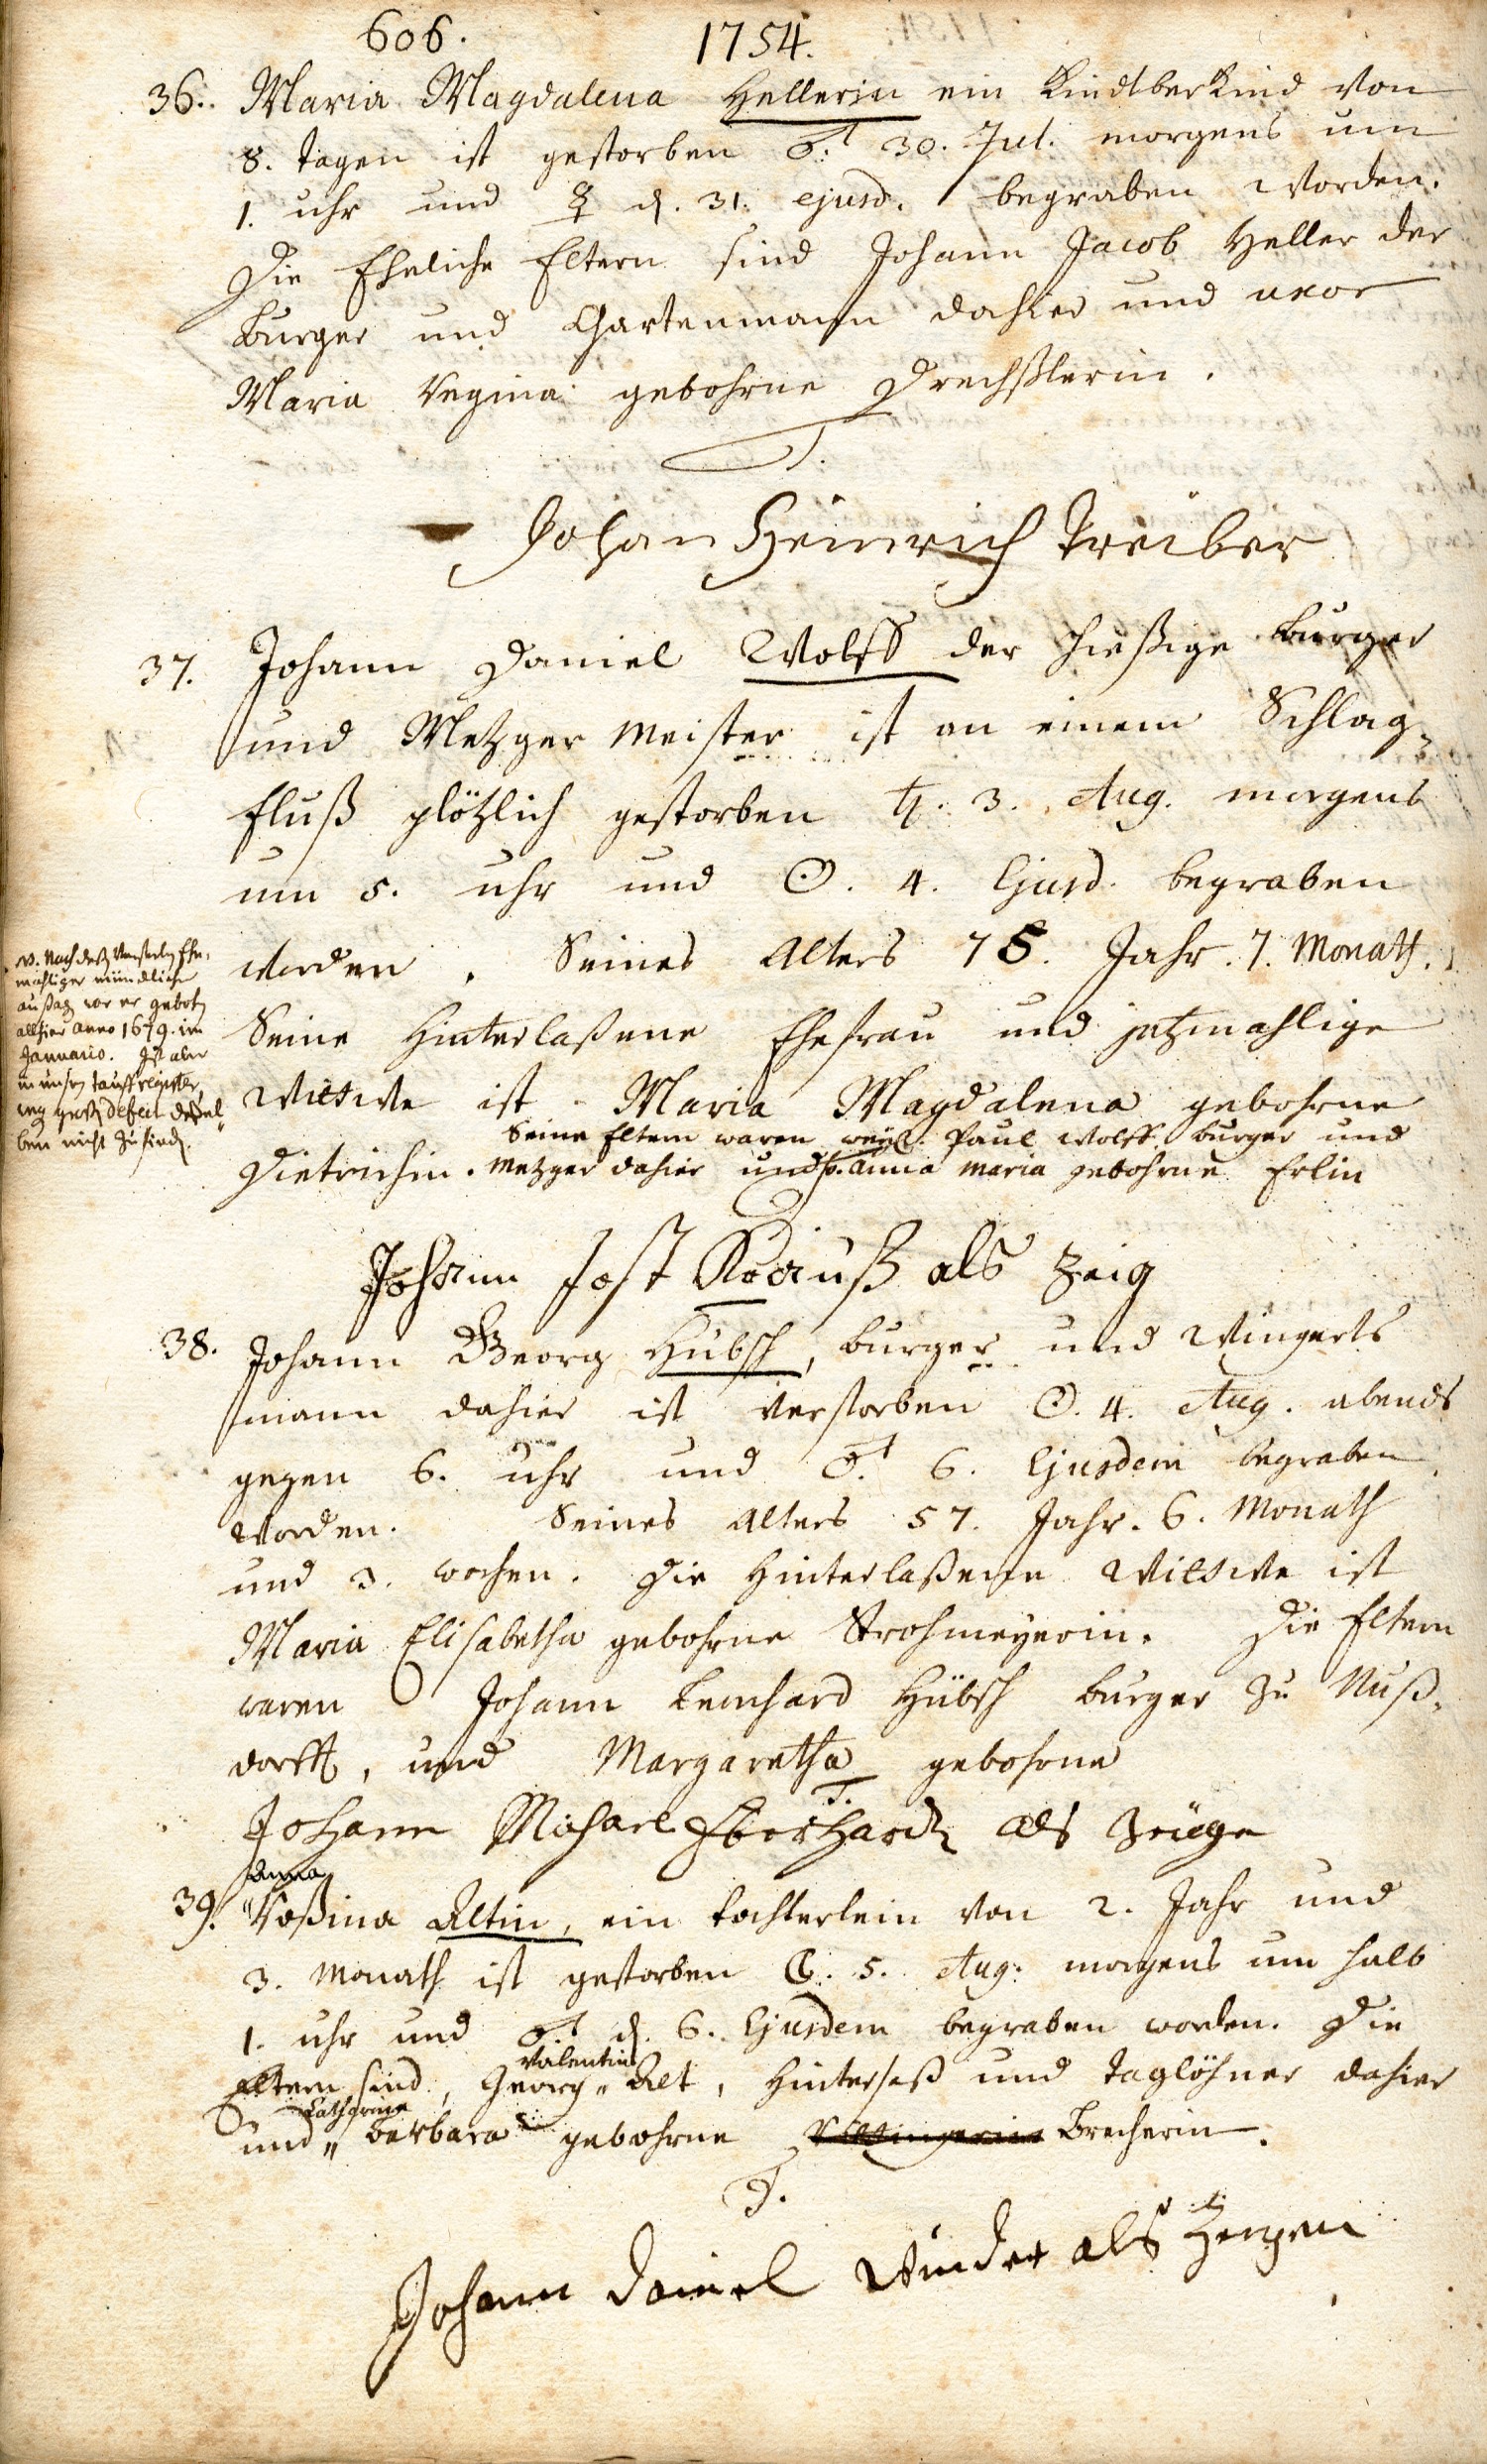 606. 1754.
36. Maria Magdalena Hellerin ein Kindtberkind von
8. tagen ist gestorben ♂. 30. Jul. morgens um
1. uhr und ☿ d. 31. ejusd. begraben worden.
Die Eheliche Eltern sind Johann Jacob Heller der
burger und Gartenmann dahier und uxor
Maria Regina gebohrne Drechßlerin.
T.
Johan Heinrich Treiber
37. Johann Daniel Wolff der hießige burger
und Metzger meister ist an einem Schlag-
fluß plötzlich gestorben ♄. 3. Aug. morgens
um 5. uhr und ☉. 4. Ejusd. begraben
worden. Seines Alters 75. Jahr. 7. Monath.
NB. Nach deß Ehe-
mahligen mündliche
außag war er gebohrn
allhier anno 1679. im
Januario. Ist aber
in unserm tauffregister,
weg. groß. defect deßel-
ben nicht zu find.
Seine hinterlaßene Ehefrau und jetzmahlige
Wittwe ist Maria Magdalena gebohrne
Seine Eltern waren weyl. Paul Wolff burger und
Dietrichin. Metzger dahier und Anna Maria gebohrne Erlin
Johann Jost Krauß als Zeig
38. Johann Georg Hübsch, burger und Wingerts
mann dahier ist verstorben ☉. 4. Aug. abends
gegen 6. uhr und ♂. 6. Ejusdem begraben
worden. Seines Alters 57. Jahr. 6. Monath
und 3. wochen. Die hinterlaßene Wittwe ist
Maria Elisabetha gebohrne Strohmeyerin. Die Eltern
waren Johann Leonhard Hübsch burger zu Nuß-
dorff, und Margaretha gebohrne
T.
Johann Michael Eberhardt als Zeuge
Anna
39. "Roßina Altin, ein tochterlein von 2. Jahr und
3. Monath ist gestorben ☾. 5. Aug. morgens um halb
1. uhr und ♂. d. 6. Ejusdem begraben worden. Die
Valentin
Eltern sind, Georg " Alt, Hintersaß und Taglöhner dahier
Catharina
und " barbara gebohrne Brecherin.
T.
Johann Daniel Winder als Zeugen